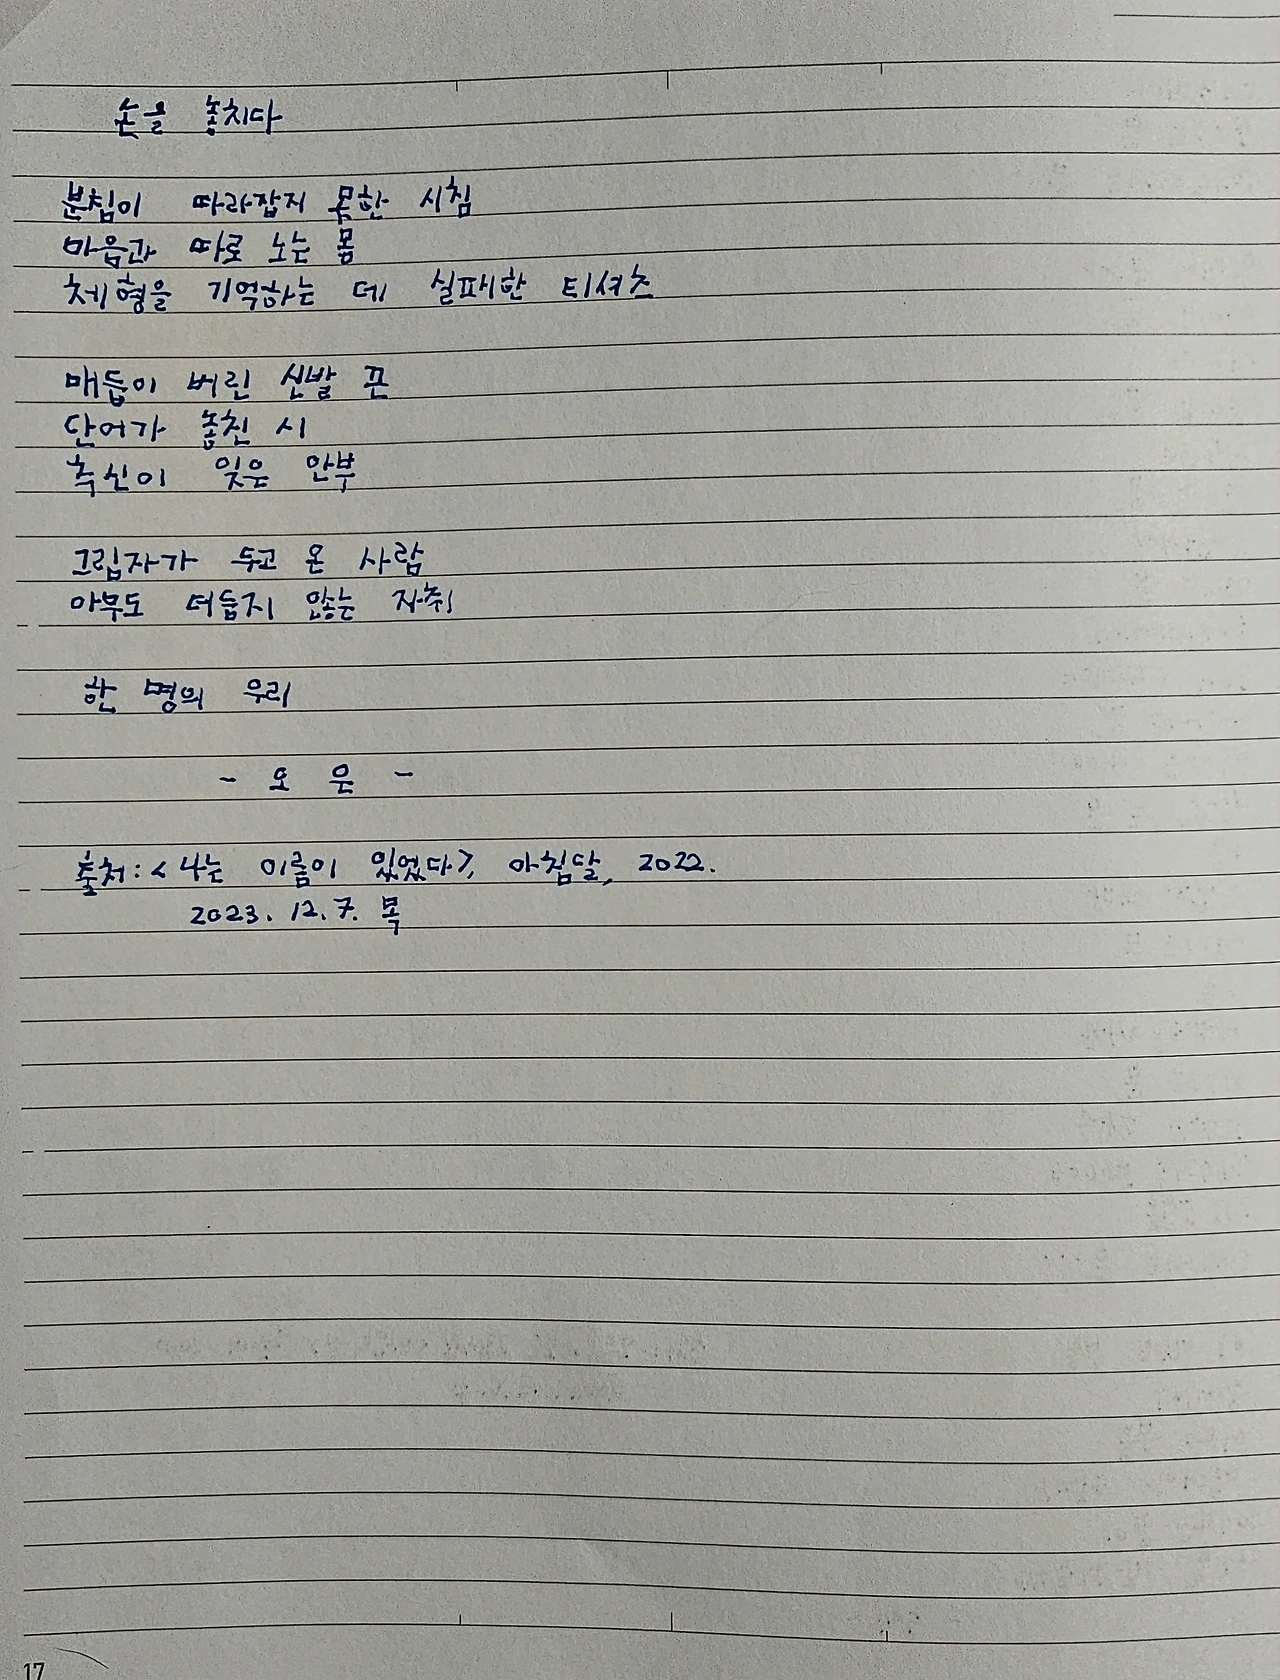 손을 놓치다
분침이 따라잡지 못한 시침
마음과 따로 노는 몸
체형을 기억하는 데 실패한 티셔츠
매듭이 버린 신발 끈
단어가 놓친 시
축신이 잊은 안부
그림자가 두고 온 사람
아무도 더듬지 않는 자취
한 명의 우리
- 오 은 -
출처: <나는 이름이 있었다>, 아침달, 2022.
2023. 12. 7. 목
17